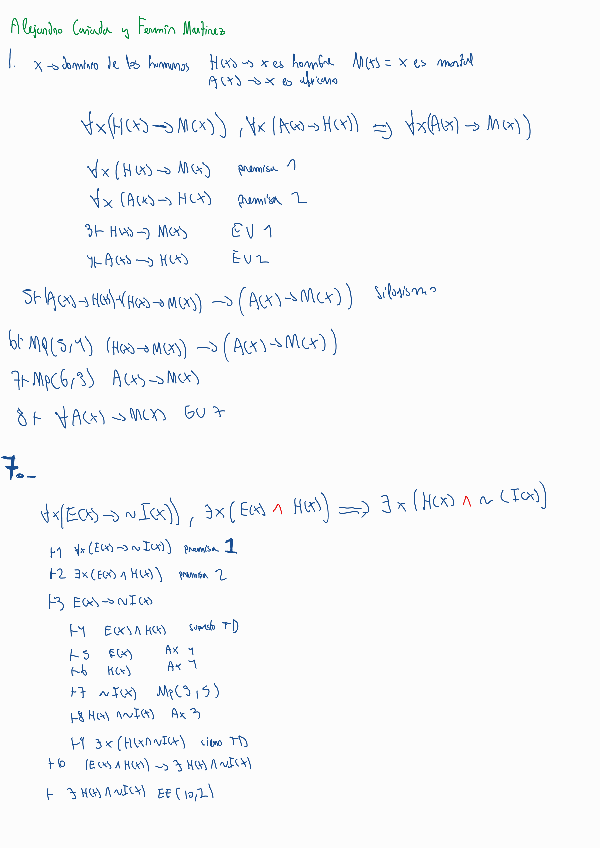 Alejandro Cañada y Fermín Martinez
1. x → dominio de los humanos H(x) → x es hombre M(x) = x es mortal
A(x) → x es africano
∀x(H(x) → M(x)) , ∀x (A(x) → H(x)) => ∀x(A(x) → M(x))
∀x (H(x) → M(x) premisa 1
∀x (A(x) → H(x) premisa 2
3⊢ H(x) → M(x) EU 1
4⊢ A(x) → H(x) EU 2
5⊢ (A(x) → H(x)) → (H(x) → M(x)) → (A(x) → M(x)) silogismo
6⊢ MP(5,4) (H(x) → M(x)) → (A(x) → M(x))
7⊢ MP(6,3) A(x) → M(x)
8⊢ ∀A(x) → M(x) GU 7
7.-
∀x(E(x) → ~I(x)) , ∃x (E(x) ∧ H(x)) => ∃x (H(x) ∧ ~(I(x))
⊢1 ∀x(E(x) → ~I(x)) premisa 1
⊢2 ∃x(E(x) ∧ H(x)) premisa 2
⊢3 E(x) → ~I(x)
⊢4 E(x) ∧ H(x) supuesto TD
⊢5 E(x) Ax 4
⊢6 H(x) Ax 4
⊢7 ~I(x) MP(3,5)
⊢8 H(x) ∧ ~I(x) Ax 3
⊢9 ∃x (H(x) ∧ ~I(x) cierro TD
⊢10 (E(x) ∧ H(x)) → ∃ H(x) ∧ ~I(x)
⊢ ∃ H(x) ∧ ~I(x) EE(10,2)